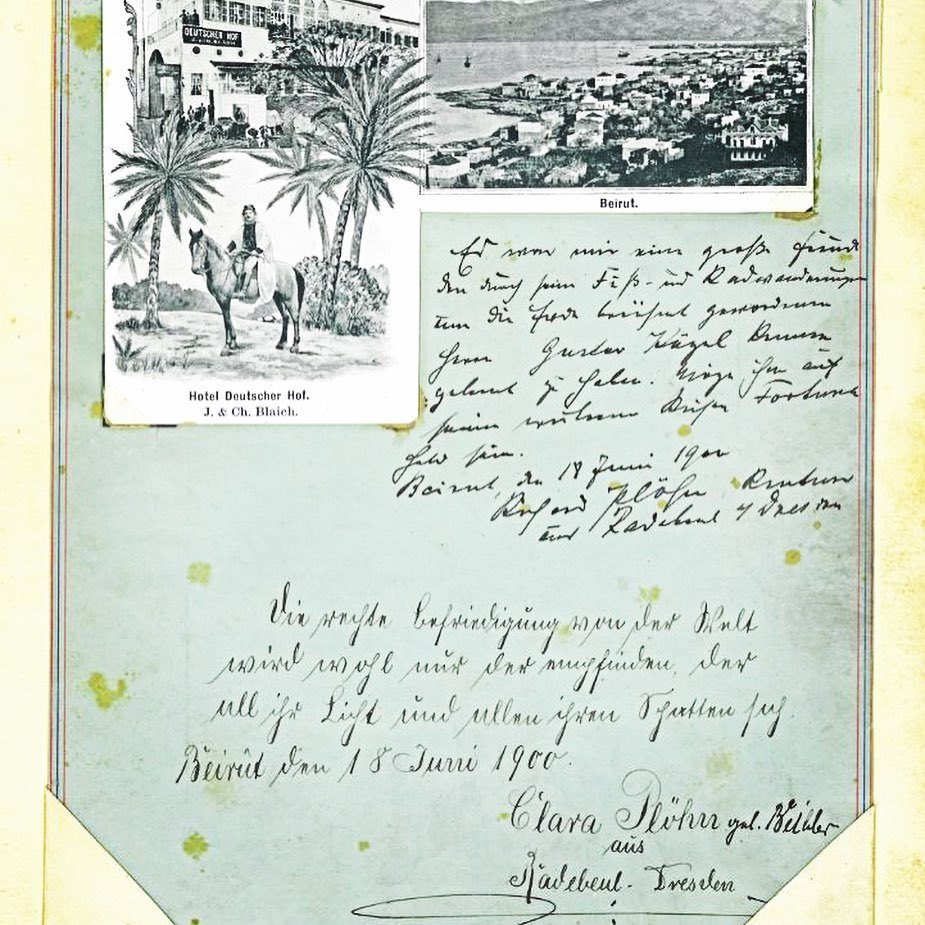 DEUTSCHER HOF
Beirut.
Hotel Deutscher Hof.
J. & Ch. Blaich.
Es war mir eine große Freude
den durch seine Fuß- und Radwanderungen
um die Erde berühmt gewordenen
Herrn Gustav Kögel kennen
gelernt zu haben. Möge ihm auf
seinen weiteren Reisen Fortuna
hold sein.
Beirut, den 18 Juni 1900
Richard Plöhn, Rentner
aus Radebeul / Dresden
Die rechte Befriedigung von der Welt
wird wohl nur der empfinden, der
all ihr Licht und allen ihren Schatten sah.
Beirut den 18 Juni 1900.
Clara Plöhn geb. Beibler
aus
Radebeul - Dresden